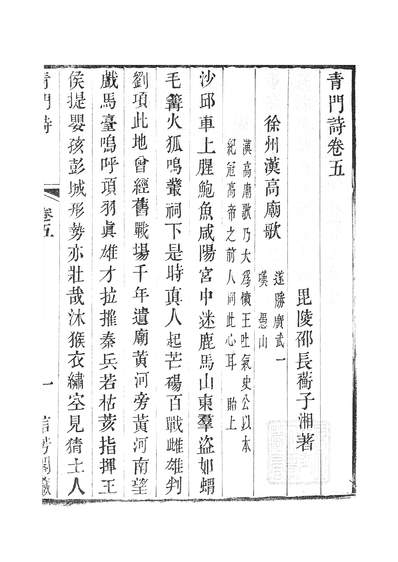 青門詩卷五
毘陵邵長蘅子湘著
徐州漢高廟歌
遠勝廣武一
嘆 愚山
漢高廟歌乃大為霸王吐氣史公以本
紀冠高帝之前人同此心耳 貽上
沙邱車上腥鮑魚咸陽宮中迷鹿馬山東羣盜如蝟
毛篝火狐鳴叢祠下是時真人起芒碭百戰雌雄判
劉項此地曾經舊戰場千年遺廟黃河旁黃河南望
戲馬臺嗚呼項羽真雄才拉摧秦兵若枯荄指揮王
侯提嬰孩彭城形勢亦壯哉沐猴衣繡空見猜土人
青門詩
卷五
一